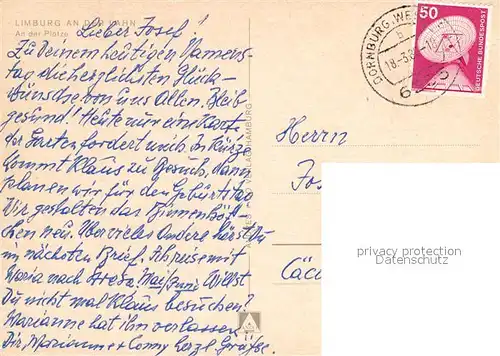 LIMBURG AN DER LAHN
An der Plötze
Lieber Josef!
Zu Deinem heutigen Namens-
tag die herzlichsten Glück-
wünsche von uns Allen. Bleib
gesund! Heute nur eine Karte
der Garten fordert mich. In Kürze
kommt Klaus zu Besuch, dann
planen wir für den Geburtstag
Wir gestalten das Binnenhöf-
chen neu. Über vieles Andere hörst Du
im nächsten Brief. Ich reise mit
Maria nach Willst
Du nicht mal Klaus besuchen?
Marianne hat ihn verlassen
Dir, Marianne + Conny herzl Grüße.
VERLAG HAMBURG
DORNBURG-WES
18.-3.8
50
DEUTSCHE BUNDESPOST
Herrn
Jos
Cäc
privacy protection
www.ansichtskarten-center.de